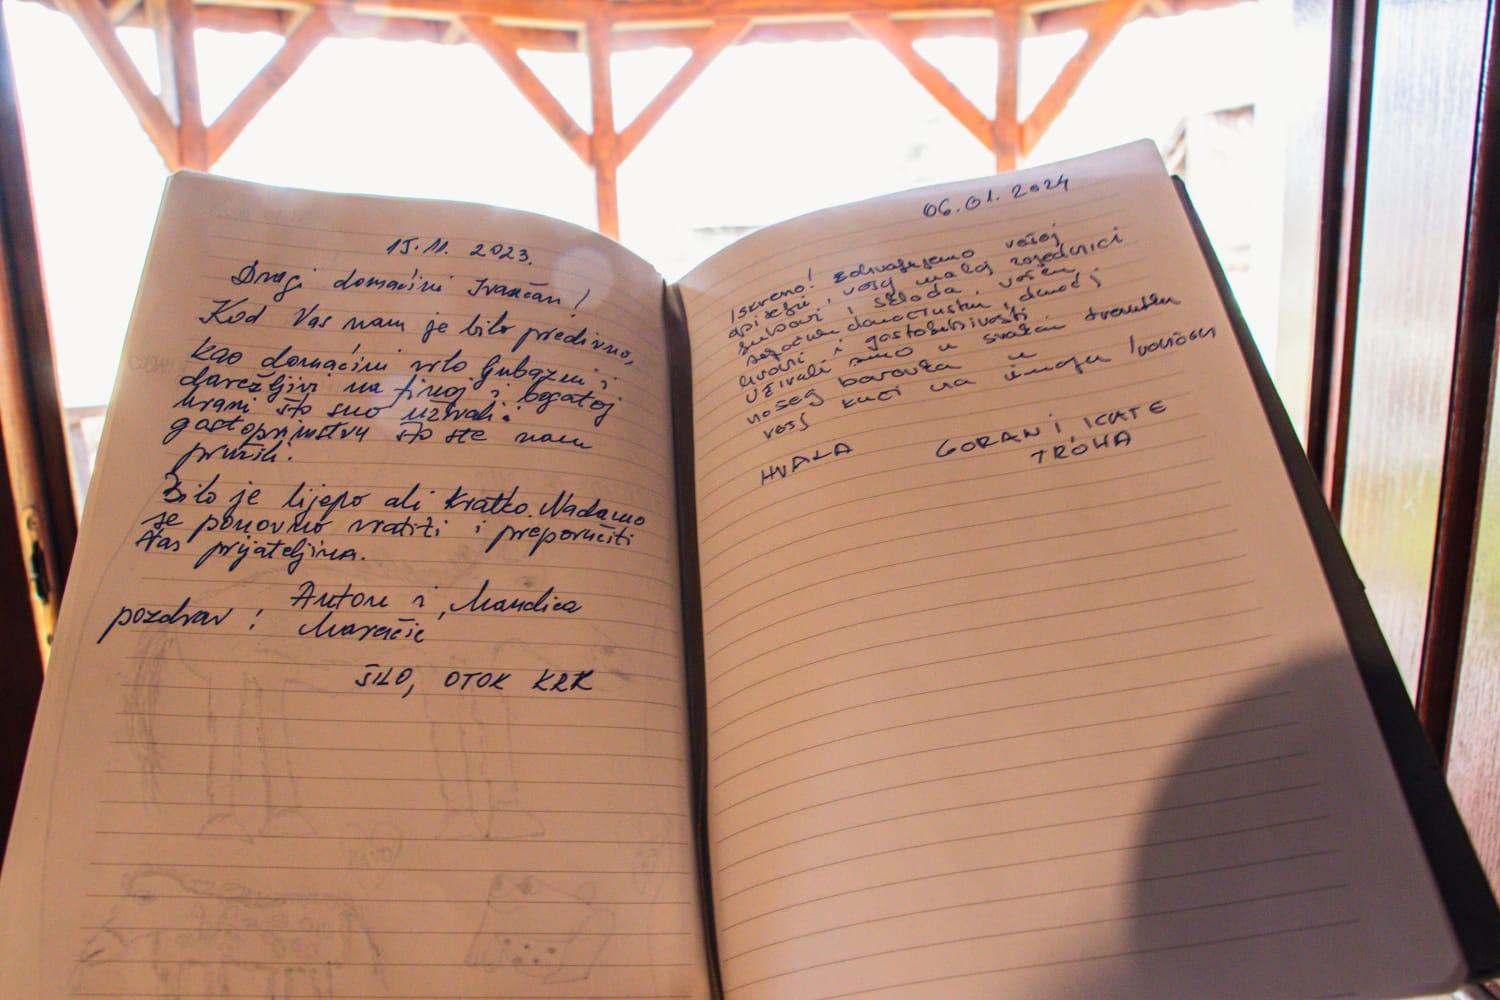 15.11. 2023.
Dragi domaćini Ivančan!
Kod Vas nam je bilo predivno,
kao domaćini vrlo ljubazni i
darežljivi na finoj i bogatoj
hrani što smo uživali i
gostoprimstvu što ste nam
pružili.
Bilo je lijepo ali kratko. Nadamo
se ponovno vratiti i preporučiti
Vas prijateljima.
pozdrav: Anton i Mandica
Maračić
ŠILO, OTOK KRK
06.01.2024
Iskreno! zahvaljujemo vašoj
i vašoj maloj zajednici
ljubavi i sklada, vašem
domaćinstvu, domaćoj
hrani i gostoljubivosti
Uživali smo u svakom trenutku
našeg boravka u
vašoj kući na imanju Ivančan
HVALA GORAN I KATE
TROHA